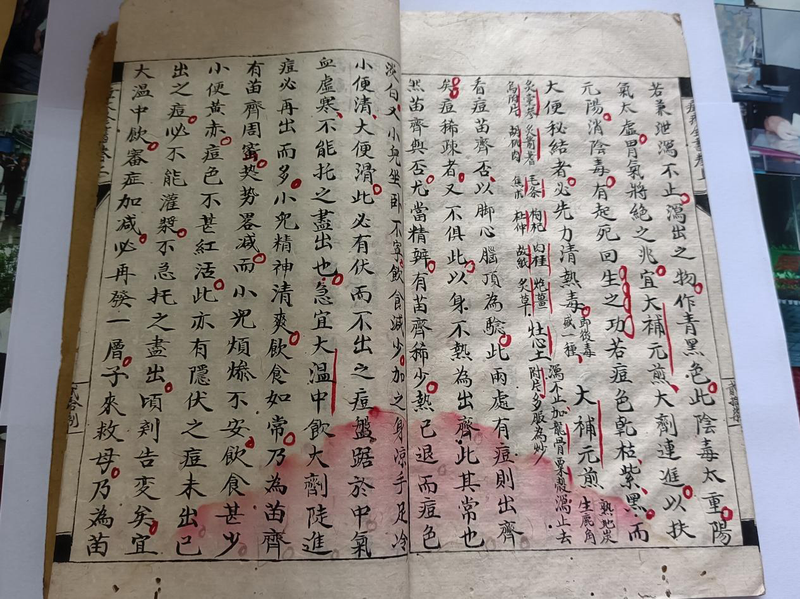 若兼泄瀉不止瀉出之物作青黑色此陰毒太重陽
氣太虛胃氣將絕之兆宜大補元煎大劑連進以扶
元陽消陰毒有起死回生之功若痘色乾枯紫黑而
大便秘結者必先力清熱毒 大補元煎 熟地炭 生鹿角
炙黃芪 棗杞 杜仲 炙草 灶心土 附片多服為妙 瀉不止加龍骨粟殼瀉止去
看痘苗齊否以脚心腦頂為驗此兩處有痘則出齊
矣痘稀疎者又不俱此以身不熱為出齊此其常也
然苗齊與否尤當精辨有苗齊稀少熱已退而痘色
淡白又小兒坐卧不寧飲食減少加之身凉手足冷
小便清大便滑此必有伏而不出之痘盤踞於中氣
血虛寒不能托之盡出也急宜大溫中飲大劑陡進
痘必再出而多小兒精神清爽飲食如常乃為苗齊
有苗齊周蜜熱勢畧減而小兒煩燥不安飲食甚少
小便黄赤痘色不甚紅活此亦有隱伏之痘未出已
出之痘必不能灌漿不急托之盡出頃刻告變矣宜
大溫中飲審症加減必再發一層子來救母乃為苗